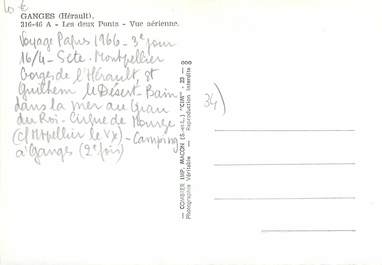 10 €
GANGES (Hérault).
216-46 A - Les deux Ponts - Vue aérienne.
Voyage Papus 1966 - 3e jour
16/4 - Sète - Montpellier
Gorges de l'Hérault, St
Guilhem le Désert - Bain
dans la mer au Grau
du Roi - Cirque de
(c/ Mtpellier le Vx) - Camping
à Ganges (2e fois)
34)
— COMBIER IMP. MACON (S.-et-L.) "CIM" - 23 — 000
Photographie Véritable — Reproduction